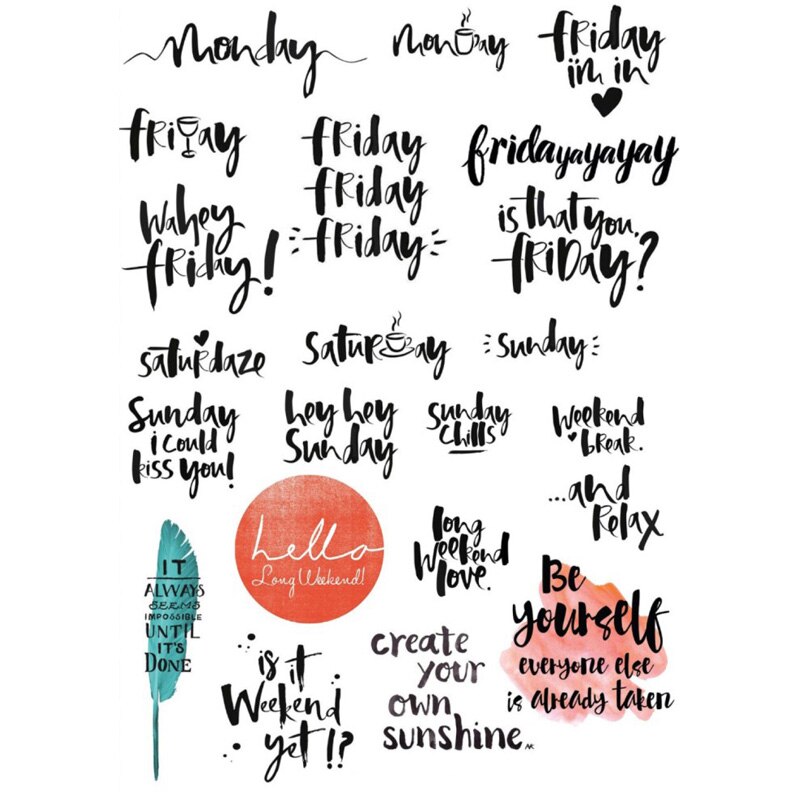 monday
monday
friday
i'm in
friday
friday
friday
friday
fridayayayay
wahey
friday!
is that you,
friday?
saturdaze
saturday
sunday
Sunday
i could
kiss you!
hey hey
Sunday
Sunday
chills
Weekend
break.
...and
Relax
hello
Long Weekend!
long
Weekend
love.
IT
ALWAYS
SEEMS
IMPOSSIBLE
UNTIL
IT'S
DONE
is it
Weekend
yet!?
create
your
own
sunshine.
Be
yourself
everyone else
is already taken